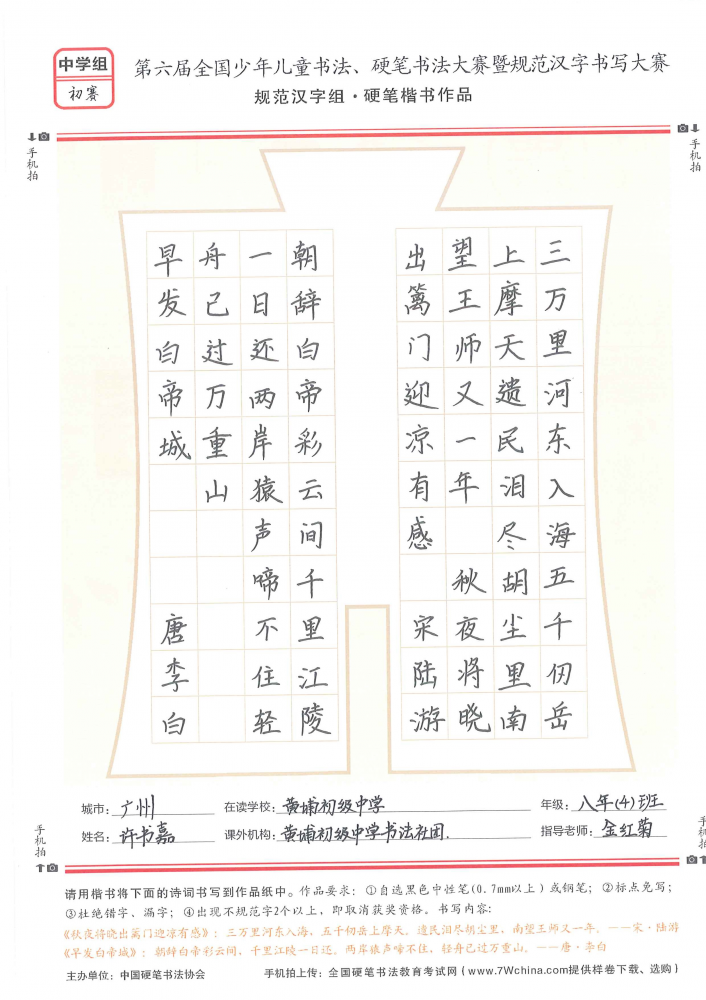 中学组
初赛
第六届全国少年儿童书法、硬笔书法大赛暨规范汉字书写大赛
规范汉字组·硬笔楷书作品
手机拍
手机拍
三万里河东入海五千仞岳
上摩天遗民泪尽胡尘里南
望王师又一年 秋夜将晓
出篱门迎凉有感 宋陆游
朝辞白帝彩云间千里江陵
一日还两岸猿声啼不住轻
舟已过万重山
早发白帝城 唐李白
城市：广州 在读学校：黄埔初级中学 年级：八年(4)班
姓名：许书嘉 课外机构：黄埔初级中学书法社团. 指导老师：金红菊
手机拍
手机拍
请用楷书将下面的诗词书写到作品纸中。作品要求：①自选黑色中性笔(0.7mm以上)或钢笔；②标点免写；
③杜绝错字、漏字；④出现不规范字2个以上，即取消获奖资格。书写内容：
《秋夜将晓出篱门迎凉有感》：三万里河东入海，五千仞岳上摩天。遗民泪尽胡尘里，南望王师又一年。——宋·陆游
《早发白帝城》：朝辞白帝彩云间，千里江陵一日还。两岸猿声啼不住，轻舟已过万重山。——唐·李白
主办单位：中国硬笔书法协会 手机拍上传：全国硬笔书法教育考试网（www.7Wchina.com提供样卷下载、选购）